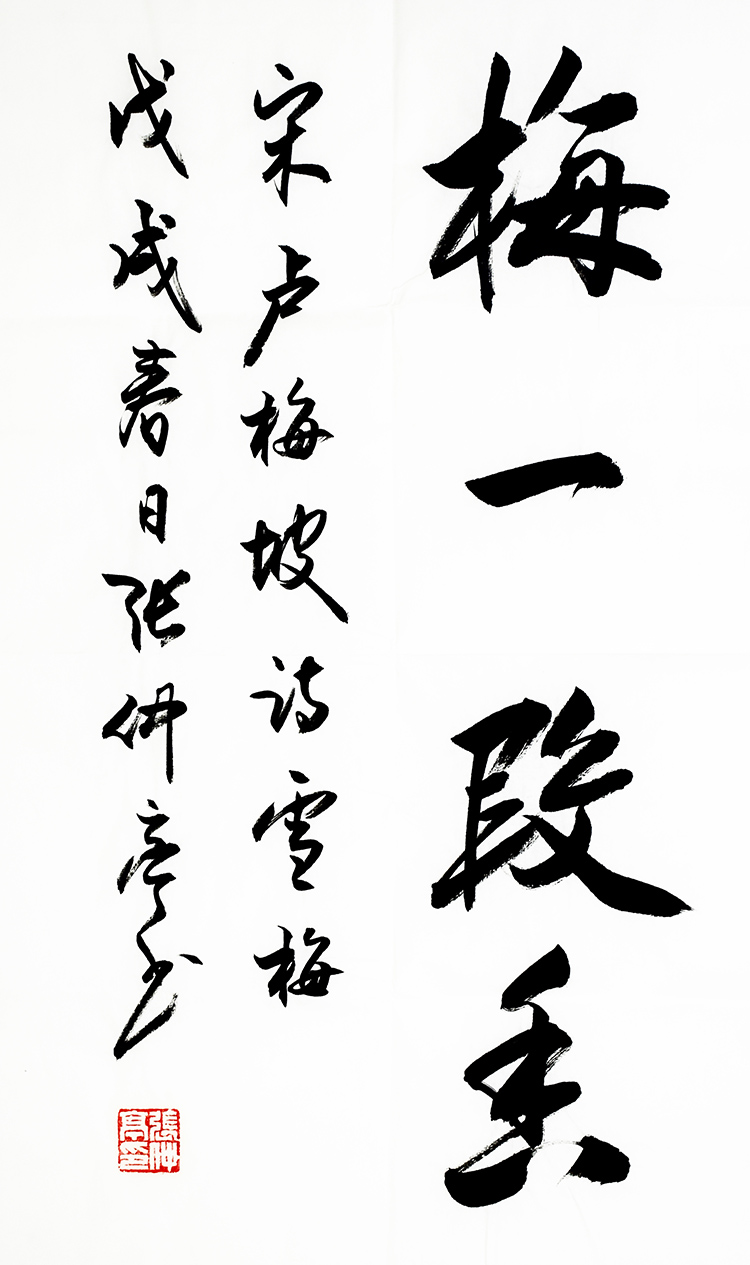 梅一段香
宋卢梅坡诗雪梅
戊戌春日张仲亭书
張仲亭印